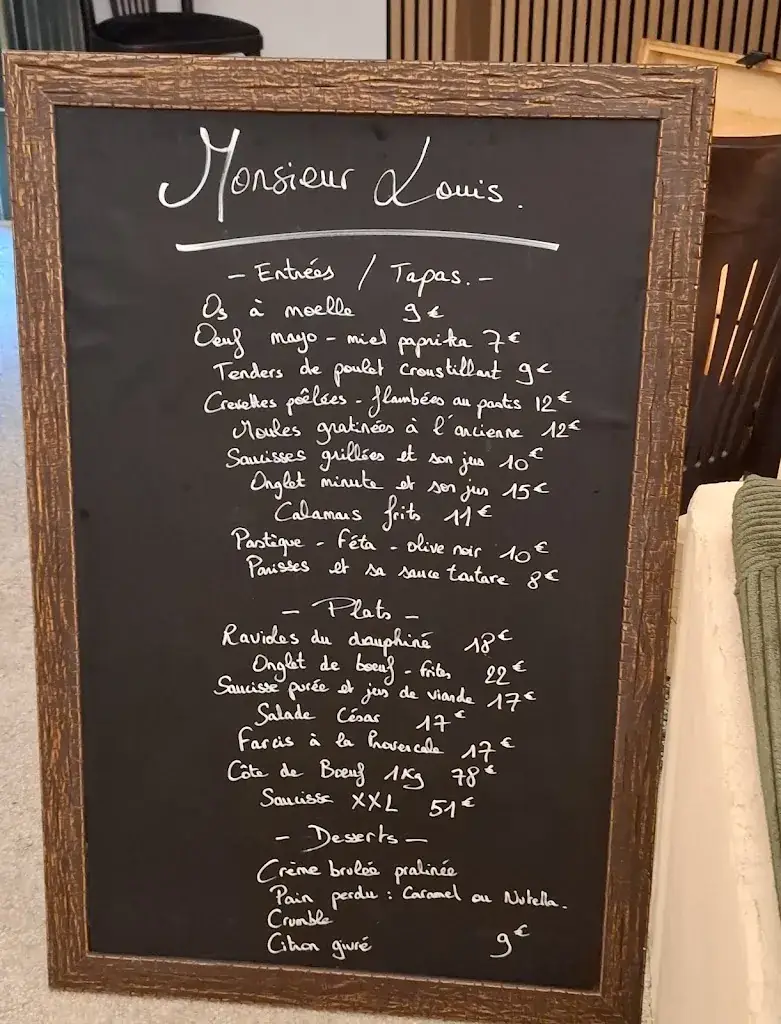 Monsieur Louis.
- Entrées / Tapas. -
Os à moelle 9€
Oeuf mayo - miel paprika 7€
Tenders de poulet croustillant 9€
Crevettes pôelées - flambées au pastis 12€
Moules gratinées à l'ancienne 12€
Saucisses grillées et son jus 10€
Onglet minute et son jus 15€
Calamars frits 11€
Pastèque - Féta - olive noir 10€
Panisses et sa sauce tartare 8€
- Plats -
Ravioles du dauphiné 18€
Onglet de boeuf - frites 22€
Saucisse purée et jus de viande 17€
Salade César 17€
Farcis à la Provencale 17€
Côte de Boeuf 1Kg 78€
Saucisse XXL 51€
- Desserts -
Crème brulée pralinée
Pain perdu : Caramel ou Nutella.
Crumble
Citron givré 9€